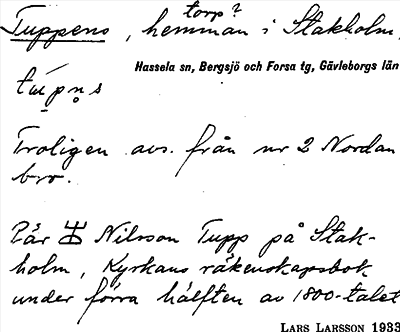 torp?
Tuppens, hemman i Stakholm,
Hassela sn, Bergsjö och Forsa tg, Gävleborgs län
túpn̥s
Troligen avs. från nr 2 Nordan
bro.
Pär Nilsson Tupp på Stak-
holm, Kyrkans räkenskapsbok
under förra hälften av 1800-talet
LARS LARSSON 1933